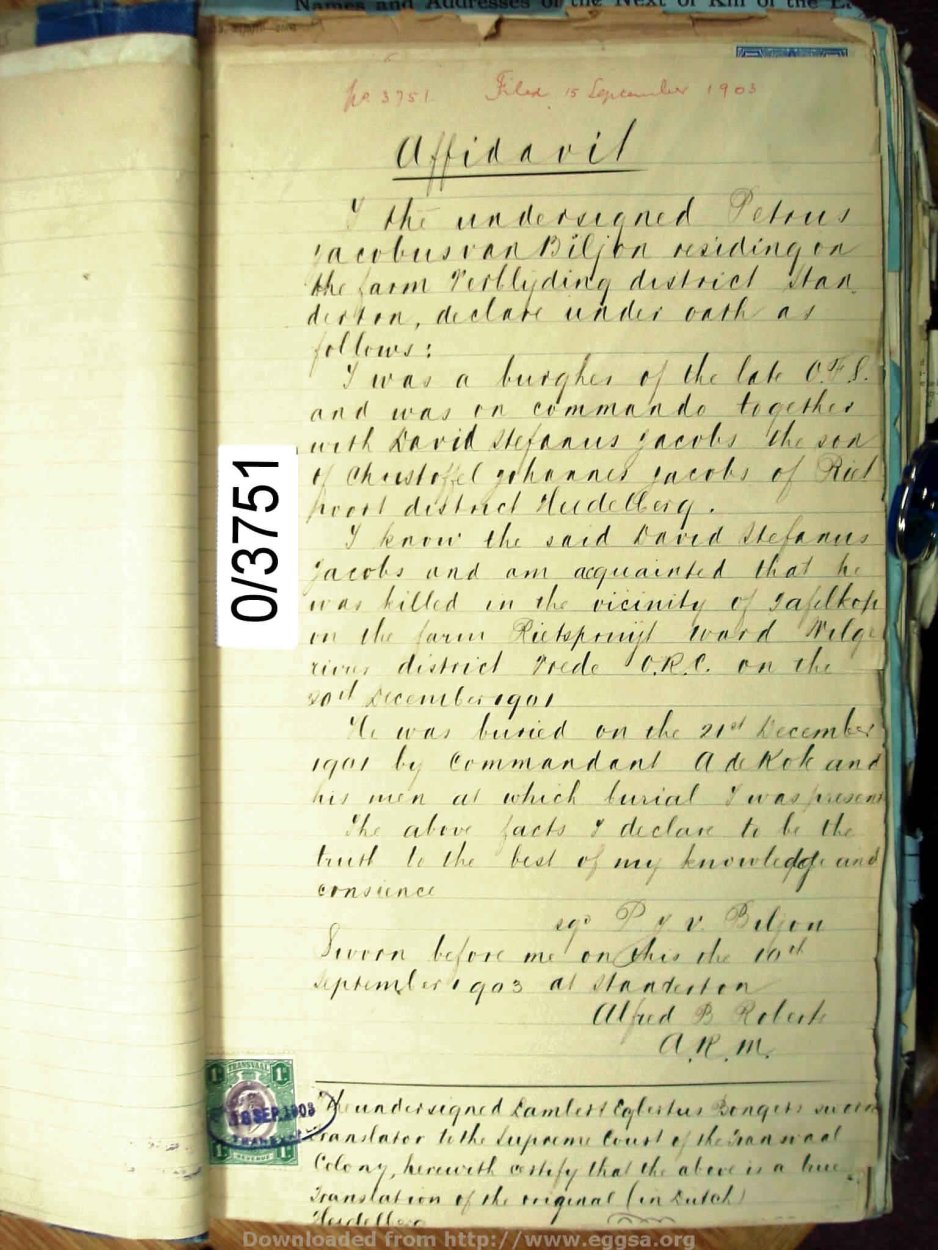 Names and Addresses of the Next of Kin of the
No 3751. Filed 15 September 1903
Affidavit
I the undersigned Petrus
Jacobus van Biljon residing on
the farm Verblyding district Stan
derton, declare under oath as
follows:
I was a burgher of the late O.F.S.
and was on commando together
with David Stefanus Jacobs the son
of Christoffel Johannes Jacobs of Riet
poort district Heidelberg.
I know the said David Stefanus
Jacobs and am acquainted that he
was killed in the vicinity of Tafelkop
on the farm Rietspruijt ward Wilge
river district Vrede O.R.C. on the
20th December 1901
He was buried on the 21st December
1901 by Commandant A de Kok and
his men at which burial I was present
The above facts I declare to be the
truth to the best of my knowledge and
consience
sgd P J v. Biljon
Sworn before me on this the 10th
September 1903 at Standerton
Alfred B Roberts
A.R.M.
0/3751
TRANSVAAL
18 SEP 1903
REVENUE
The undersigned Lambert Eglertus Bongers sworn
Translator to the Supreme Court of the Transvaal
Colony, herewith certify that the above is a true
Translation of the original (in Dutch)
Heidelberg
Downloaded from http://www.eggsa.org